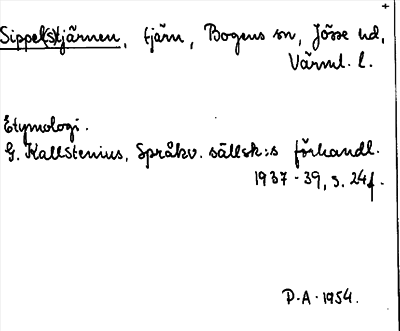 Sippel(s)tjärnen, tjärn, Bogens sn, Jösse hd,
Värml. l.
Etymologi.
G. Kallstenius, Språkv. sällsk:s förhandl.
1937-39, s. 24f.
P.A. 1954.